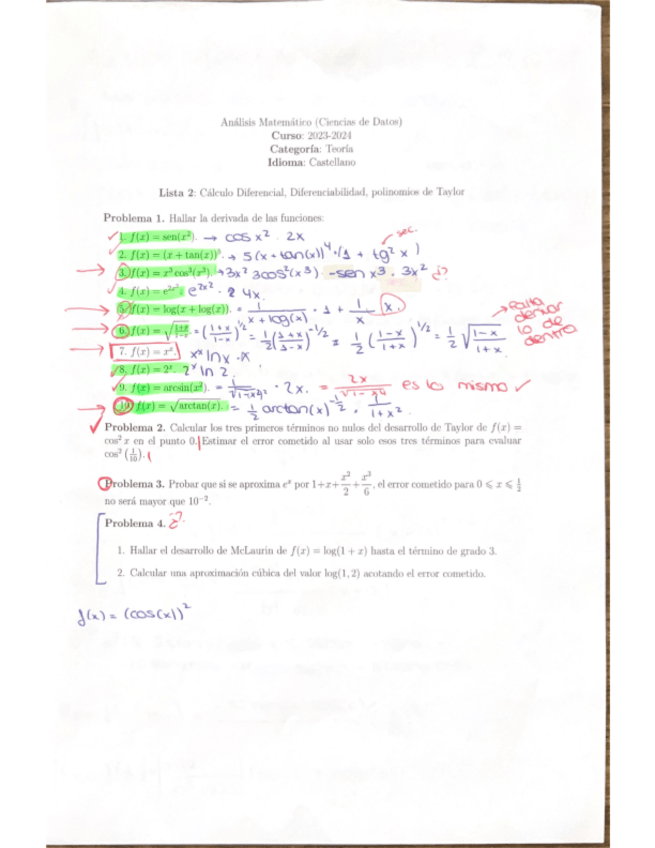 Análisis Matemático (Ciencias de Datos)
Curso: 2023-2024
Categoría: Teoría
Idioma: Castellano
Lista 2: Cálculo Diferencial, Diferenciabilidad, polinomios de Taylor
Problema 1. Hallar la derivada de las funciones:
sec.
1. f(x) = sen(x²). → cos x² · 2x
2. f(x) = (x + tan(x))⁵. → 5(x + tan(x))⁴ · (1 + tg² x)
3. f(x) = x³ cos³(x³). → 3x² 3cos²(x³) · -sen x³ · 3x² ¿?
4. f(x) = e^(2x²). e^(2x²) · 2 4x.
5. f(x) = log(x + log(x)). = 1/(x + log(x)) · 1 + 1/x (x.)
falta derivar lo de dentro
6. f(x) = √((1+x)/(1−x)). = ((1+x)/(1−x))^(1/2) = 1/2 ((1+x)/(1−x))^(−1/2) = 1/2 ((1−x)/(1+x))^(1/2) = 1/2 √((1−x)/(1+x))
7. f(x) = xˣ. xˣ ln x · x
8. f(x) = 2ˣ. 2ˣ ln 2.
9. f(x) = arcsin(x²). = 1/√(1−(x²)²) · 2x. = 2x/√(1−x⁴) es lo mismo ✓
10. f(x) = √(arctan(x)). = 1/2 arctan(x)^(−1/2) · 1/(1+x²)
Problema 2. Calcular los tres primeros términos no nulos del desarrollo de Taylor de f(x) =
cos² x en el punto 0. Estimar el error cometido al usar solo esos tres términos para evaluar
cos² (1/10).
Problema 3. Probar que si se aproxima eˣ por 1+x+x²/2+x³/6, el error cometido para 0 ⩽ x ⩽ 1/2
no será mayor que 10⁻².
Problema 4. ¿?
1. Hallar el desarrollo de McLaurin de f(x) = log(1 + x) hasta el término de grado 3.
2. Calcular una aproximación cúbica del valor log(1,2) acotando el error cometido.
f(x) = (cos(x))²